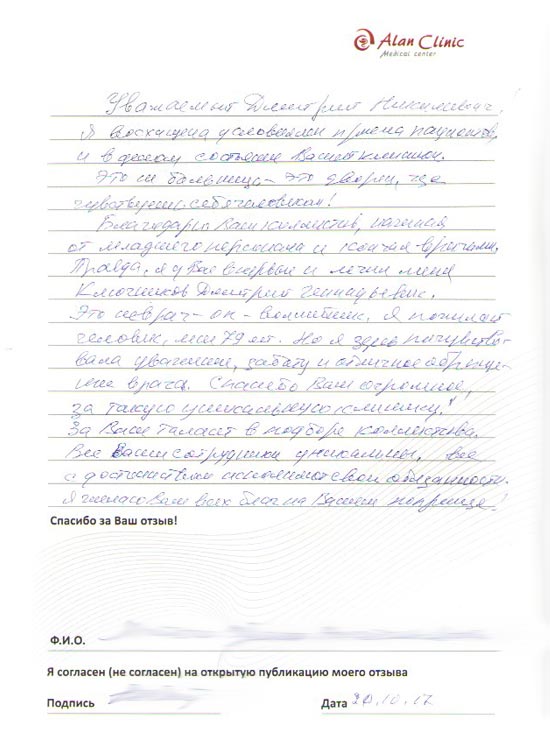 Alan Clinic
Medical center
Уважаемый Дмитрий Николаевич,
Я восхищена условиями приема пациентов,
и в целом состояние Вашей клиники.
Это не больница - это дворец, где
чувствуешь себя человеком!
Благодарю Ваш коллектив, начиная
от младшего персонала и кончая врачами.
Правда, я у Вас впервые и лечил меня
Ключников Дмитрий Геннадьевич.
Это не врач - он - волшебник. Я пожилой
человек, мне 79 лет. Но я здесь почувство-
вала уважение, заботу и отличное обраще-
ние врача. Спасибо Вам огромное,
за такую уникальную клинику!
За Ваш талант в подборе коллектива.
Все Ваши сотрудники уникальны, все
с достоинством исполняют свои обязанности.
Я желаю Вам всех благ на Вашем поприще!
Спасибо за Ваш отзыв!
Ф.И.О.
Я согласен (не согласен) на открытую публикацию моего отзыва
Подпись
Дата 20.10.17